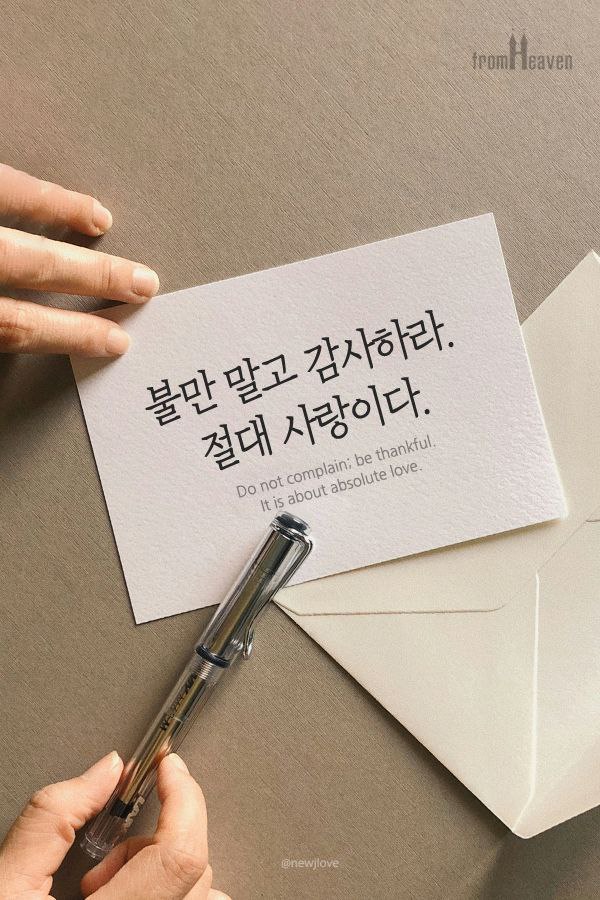 fromHeaven
불만 말고 감사하라.
절대 사랑이다.
Do not complain; be thankful.
It is about absolute love.
@newjlove